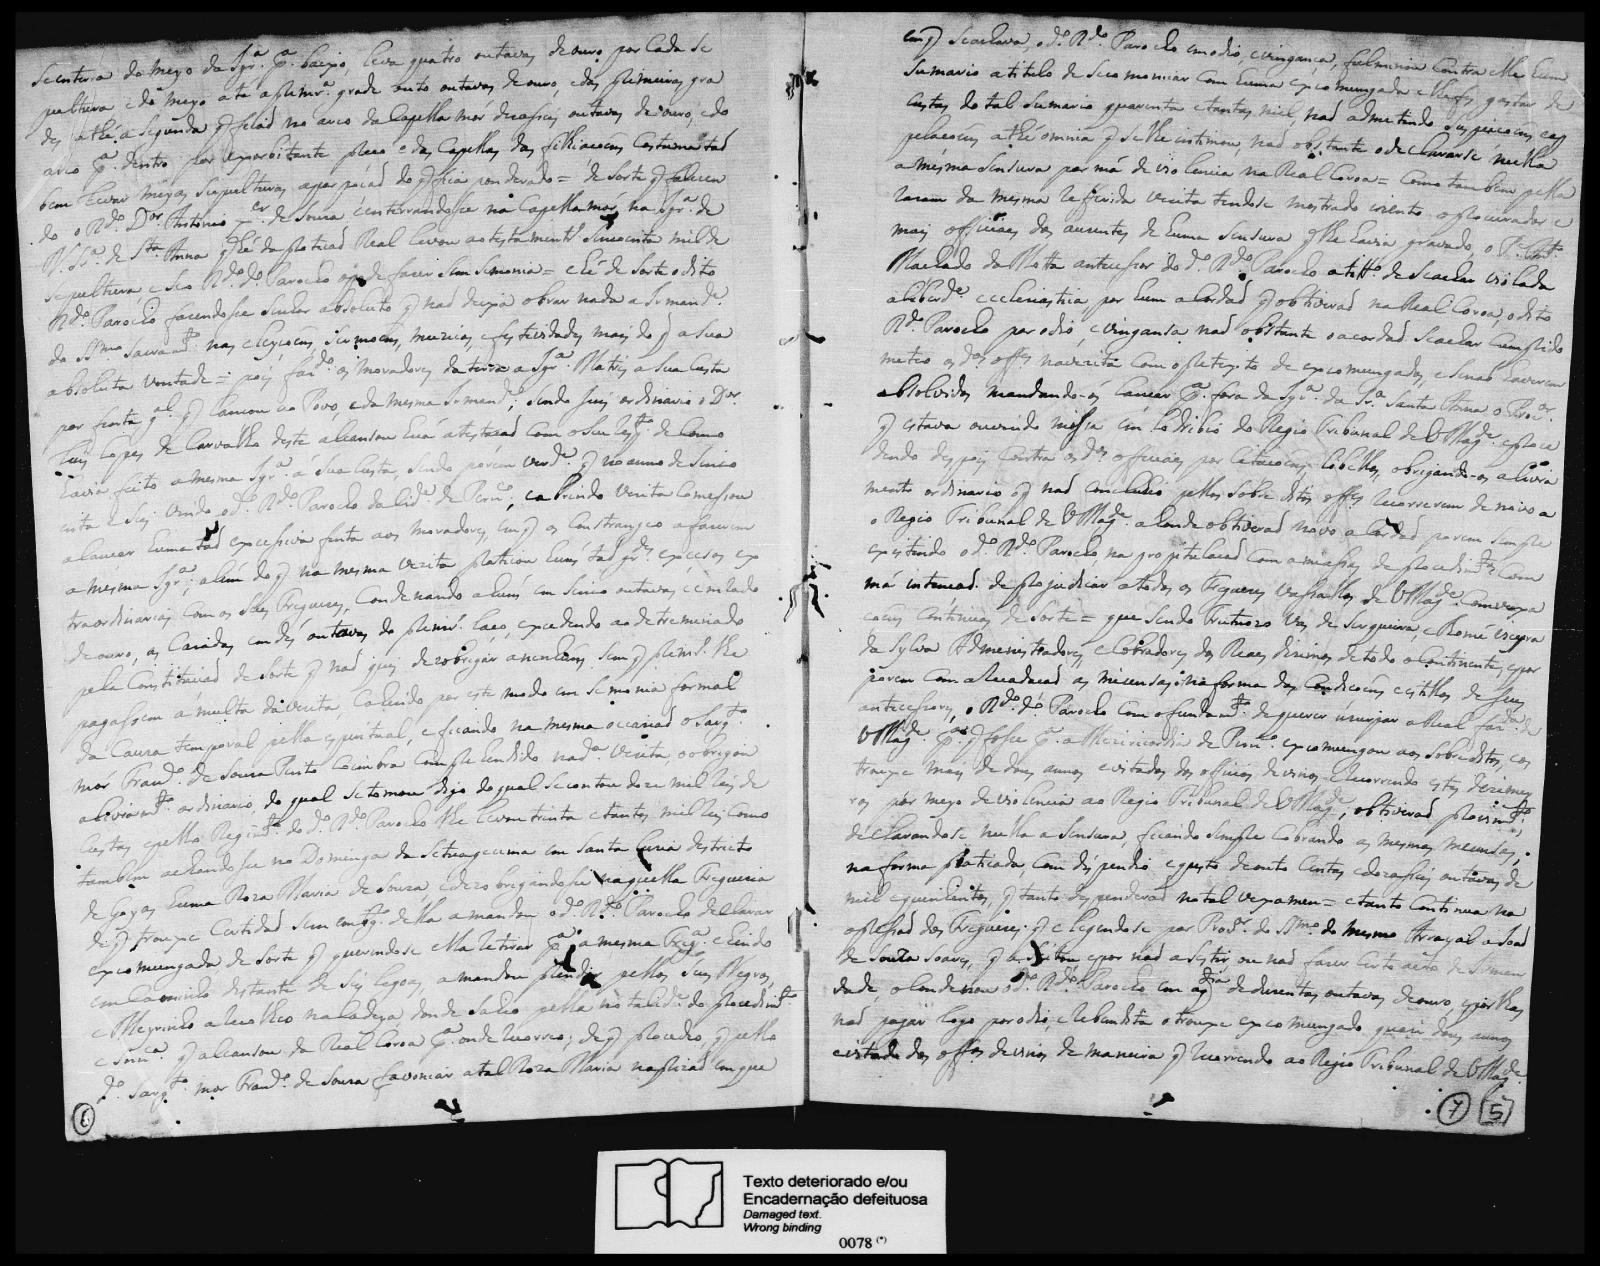 se enterra do meyo da Igr.ª p.ª baixo, leva quatro outavas de ouro por cada se
pultura e do meyo ate a prim.ª grade outo outavas de ouro, e das primeiras gra
des athé a segunda q ficaõ no arco da Capella mór dezaseis outavas de ouro, e do
arco p.ª dentro por exorbitante preço e das Capellas das filiacoens Costuma taõ
bem levar meyas sepulturas a porpoçaõ do q fica ponderado = de sorte q falecen
do o R.do D.or Antonio de Souza e enterrandose na Capella mor na Igr.ª de
N. Sr.ª de S.ta Anna q hé da proteçaõ Real levou ao testament.º sincoenta mil de
sepultura e seo R.do d.º Parocho o pode fazer sem semonia = e hé de sorte o dito
R.do Parocho fazendose senhor absoluto q naõ deixa obrar nada a Irmand.e
do SSmo Sacram.to nas eleyçoens, sermoens, muzicas, e festividades mais do q a sua
absoluta vontade = pois os moradores da terra a Igr.ª Matris a sua custa
por finta g.al q lançou ao Povo, e da mesma Irmand.e; sendo Juis ordinario o D.or
Luis Lopes de Carvalho deste alcansou huã atestaçaõ com o seu de como
havia feito a mesma Igr.ª á sua custa, sendo porem verd.e q no anno de sinco
enta e seis vindo o d.º R.do Parocho da Cid.e de Pern.co; e abrindo vezita comessou
a lancar huma taõ excessiva finta aos moradores, em q os constrangeo a fazerem
a mesma Igr.ª; alem do q na mesma vezita praticou huns taõ gr.des excesos ex
traordinarios com os seus Freguezes, condenando a huns em sinco outavas, e em lado
de ouro, os cazados em des outavas do prim.º laço, excedendo ao determinado
pela Constituicaõ de sorte q naõ quis dezobrigar a nenhum sem q prim.º lhe
pagassem a multa da vezita, cahindo por este modo em semonia formal
da cauza temporal pella espiritual, e ficando na mesma occaziaõ o Sarg.to
mór Fran.co de Souza Pinto Coimbra comprehendido na d.ª vezita, o obrigou
a livram.to ordinario do qual se tomou digo do qual se contou doze mil reis de
custas e pello Regim.to do d.º R.do Parocho lhe levou trinta e tantos mil reis; como
tambem achandose na Dominga da Setuagezima em Santa Luzia destricto
de Goyas huma Roza Maria de Souza, e dezobrigandose naquella Freguezia
de q trouxe certidaõ sem emb.go della a mandou o d.º R.do Parocho declarar
excomungada de sorte q querendose ella retirar p.ª a mesma Freg.ª e hindo
em caminho distante de seis legoas, a mandou prender pellos seus Negros,
e Meyrinho a recolheo na Cadeya donde sahio pella nullid.e do procedim.to
e senn.ca q alcansou da Real Coroa p.ª onde recorreo; de q procedeo, q pello
d.º Sarg.to mor Fran.co de Souza favorecer a tal Roza Maria na prizaõ em que
6
em q se achava, o d.º R.do Parocho em odio, e vingança, fulminou contra elle hum
sumario a titulo de se comonicar com huma excomungada e lhe fes gastar de
custas do tal sumario quarenta e tantos mil, naõ admetindo suspeicoens e ap
pelacoens athé omnia q se lhe intimou, naõ obstante o declararse nulla
a mesma sensura por má de violencia na Real Coroa = Como tambem pella
rezam da mesma referida vezita tendose mostrado izento o procurador e
mais officiaes dos auzentes de huma sensura q lhe havia gravado, o P.e Ant.º
Machado da Motta antecessor do d.º R.do Parocho a titt.º de se achar violada
a liberd.e ecclesiastica por hum acordaõ q obtiveraõ na Real Coroa, o dito
R.do Parocho por odio, e vingansa naõ obstante o acordaõ se achar cumprido
meteo os d.os off.es na vezita com o pretexto de excomungados, e senaõ haverem
absolvidos mandando-os lancar p.ª fora da Igr.ª da Sr.ª Santa Anna o Proc.or
q estava ouvindo missa em lodibrio do Regio Tribunal de VMag.e e proce
dendo despois contra os d.os officiaes por citacoens, e libellos, obrigando-os a livra
mento ordinario o q naõ concluhio pellos sobre ditos off.es recorreram de novo a
o Regio Tribunal de VMag.e a honde obtiveraõ novo acordaõ porem sempre
existindo o d.º R.do Parocho, na propitulacaõ com ameassas de procedim.tos com
má intencaõ de prejudicar a todos os Freguezes Vassallos de VMag.e com vexa
coens continuas de sorte = que sendo Frutuozo Vas de Sirqueira, e Romé vieyra
da Sylva Admenistradores, e cobradores dos Reaes dizimos de todo o continente, e por
porem com arecadacaõ as miunsas na forma das condicoens e estillos de seus
antecessores, o R.do d.º Parocho com o fundam.to de querer uzurpar a Real faz.da de
VMag.e p.ª q fosse p.ª a Mizericordia de Pern.co excomungou aos sobreditos, e os
trouxe mais de dous annos evitados dos officios devinos = e recorrendo estes dizimey
ros por meyo de violencia ao Regio Tribunal de VMag.e, obtiveraõ provim.to,
declarandose nulla a sensura, ficando sempre cobrando as mesmas meunsas,
na forma praticada, com despendio e gasto de outo centas e dezaseis outavas de
mil e quinhentos, q tanto despenderaõ no tal vexamen = e tanto continua na
opressaõ dos Freguezes; q elegendose por Proc.or do SSmo do mesmo Arrayal a Joaõ
de Souza Soares, q e por naõ asestir ou naõ fazer certo acto da Irman
dade, o condenou o d.º R.do Parocho em a q.tia de duzentas outavas de ouro, e por lhas
naõ pagar logo por odio e rebendita o trouxe excomungado quazi dous annos
evitado dos off.os devinos de maneira q recorrendo ao Regio Tribunal de VMag.e
7 5
Texto deteriorado e/ou
Encadernação defeituosa
Damaged text.
Wrong binding
0078 (*)